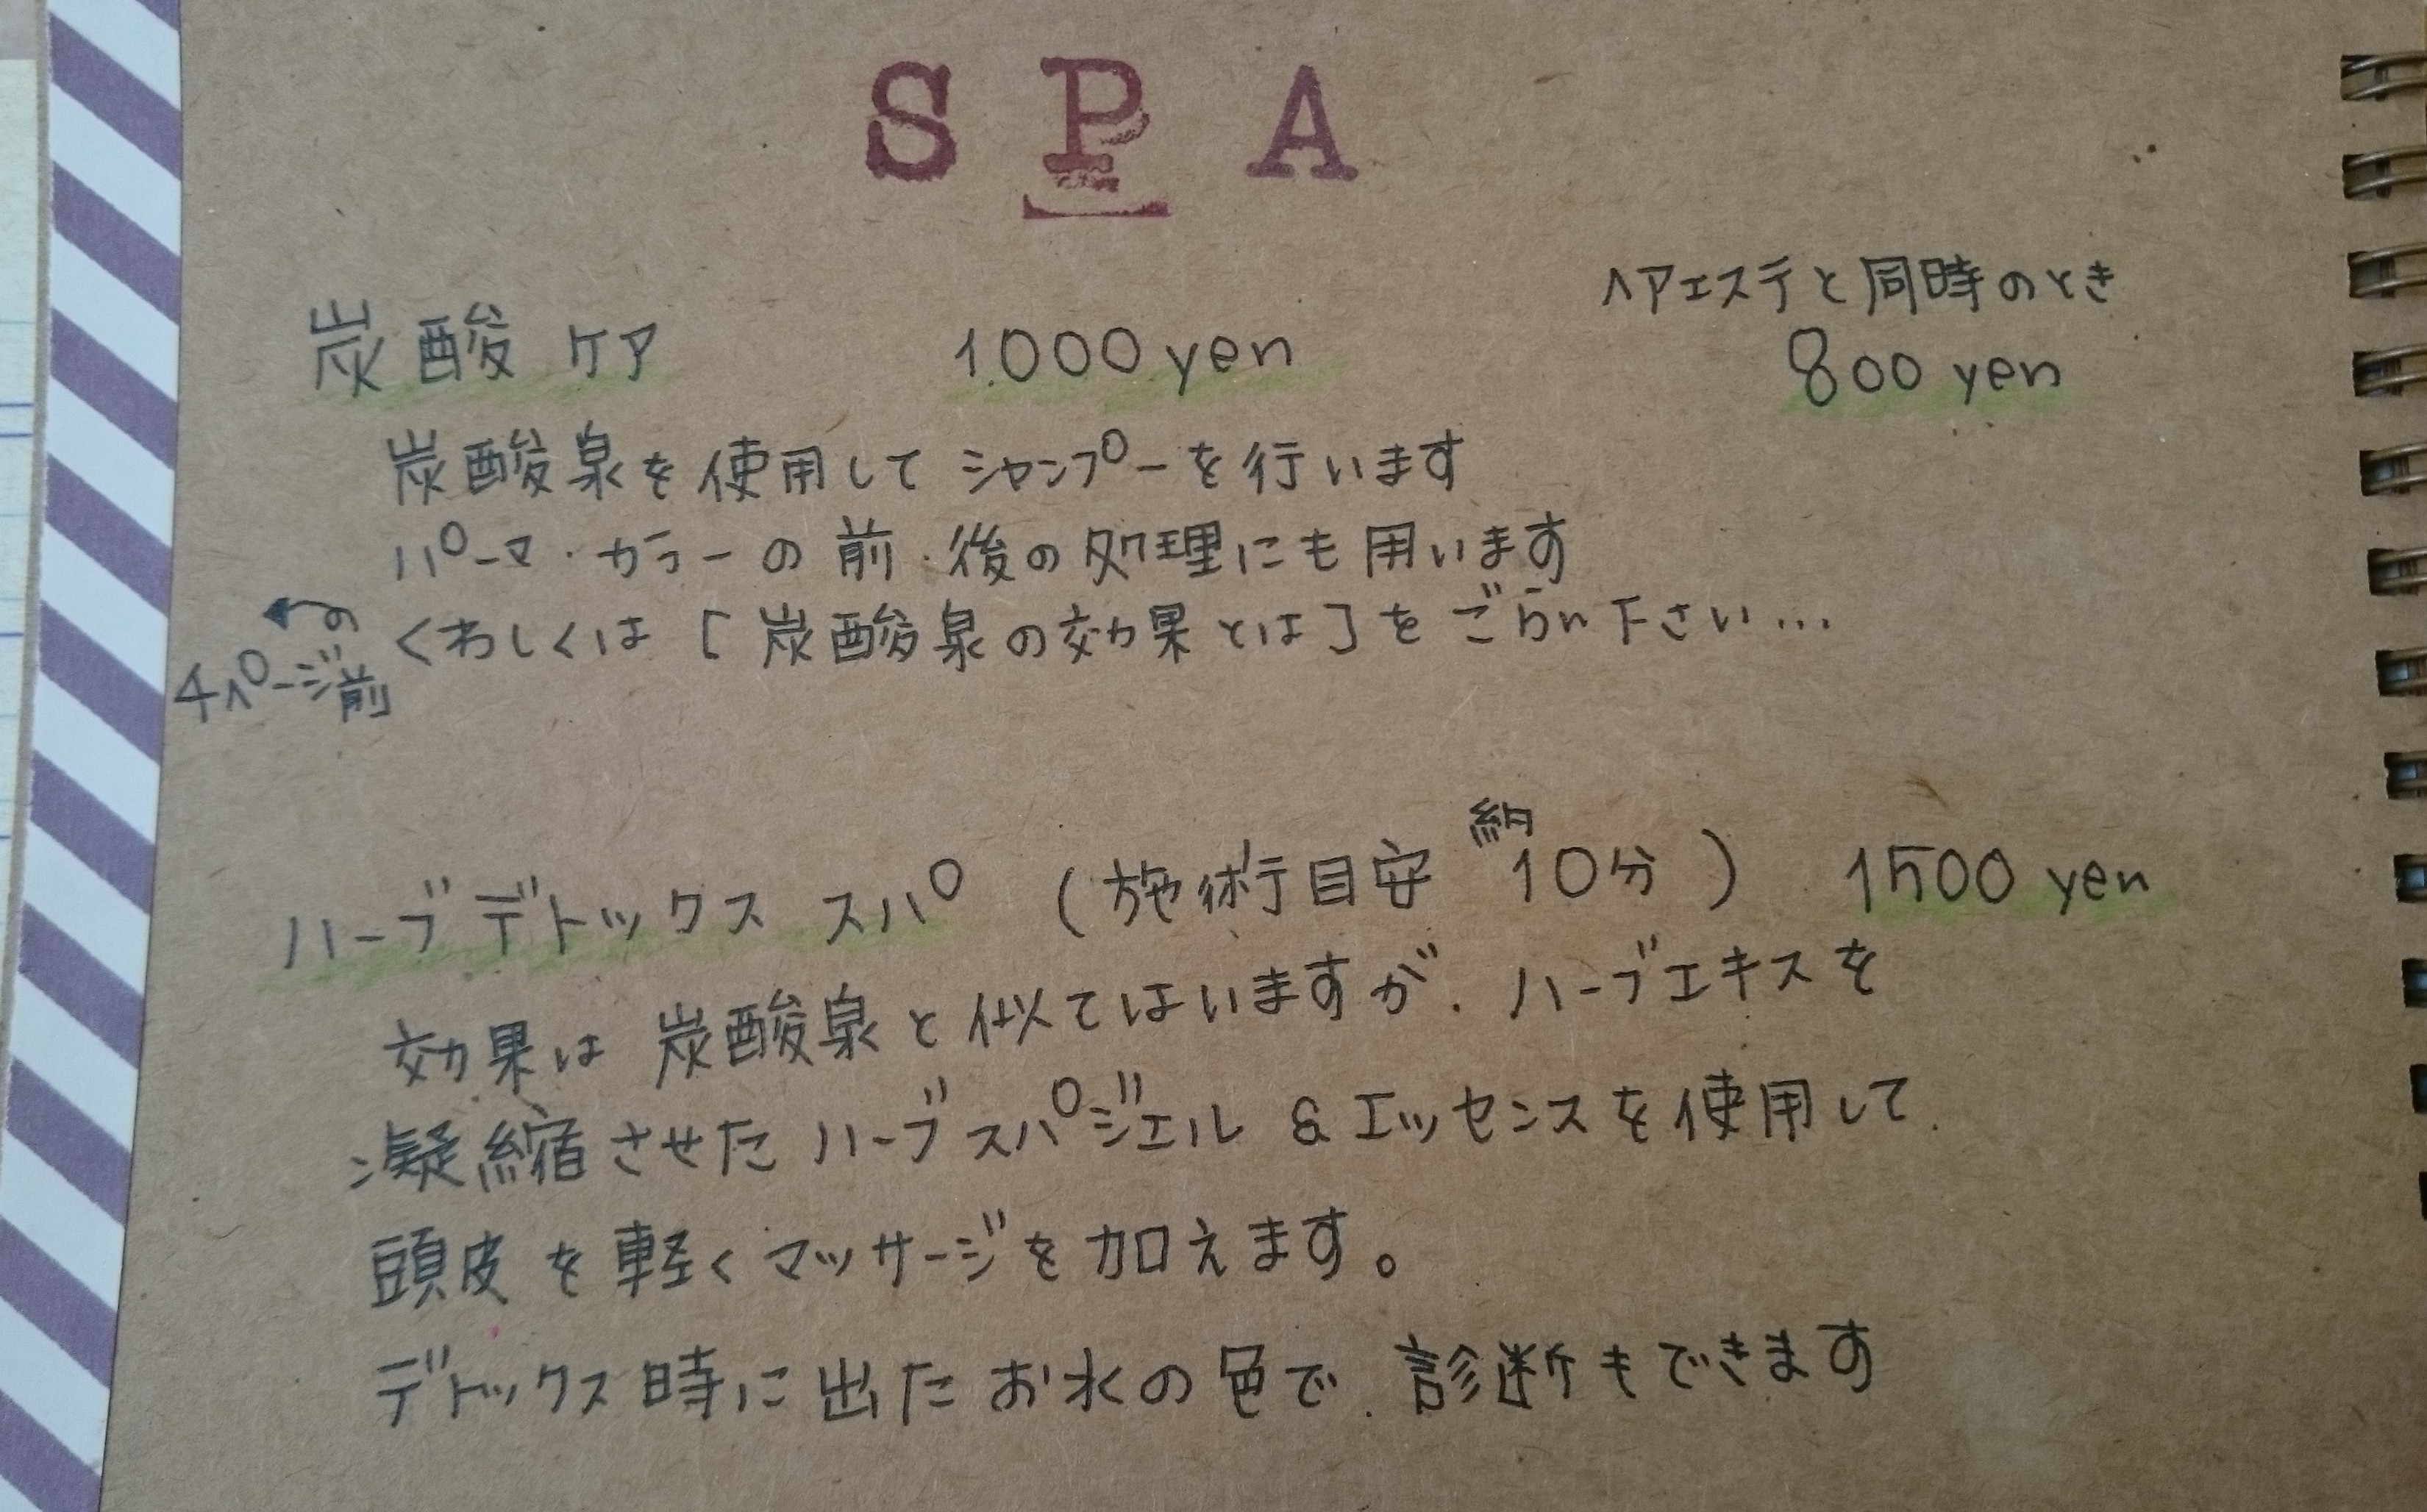 SPA
ヘアエステと同時のとき
炭酸ケア 1000 yen 800 yen
炭酸泉を使用してシャンプーを行います
パーマ・カラーの前・後の処理にも用います
くわしくは[炭酸泉の効果とは]をごらん下さい...
4ページ前
ハーブデトックス スパ (施術目安 約10分) 1500 yen
効果は炭酸泉と似てはいますが、ハーブエキスを
凝縮させたハーブスパジェル&エッセンスを使用して、
頭皮を軽くマッサージを加えます。
デトックス時に出たお水の色で、診断もできます